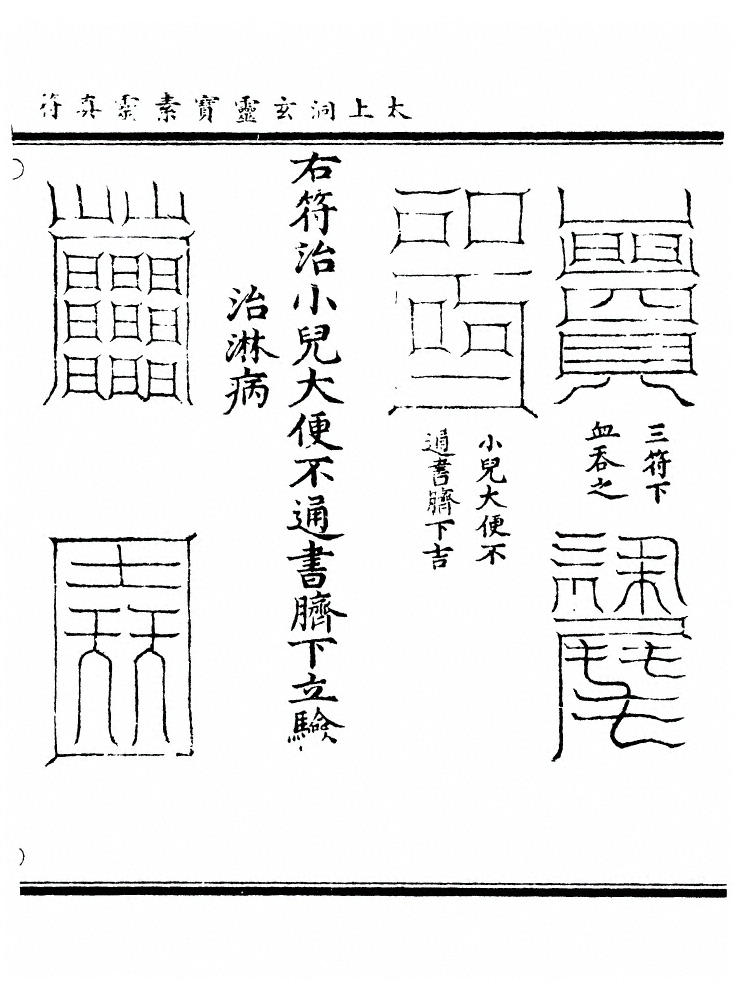 太上洞玄靈寶素靈真符
三符下
血吞之
小兒大便不
通書臍下吉
右符治小兒大便不通書臍下立驗
治淋病